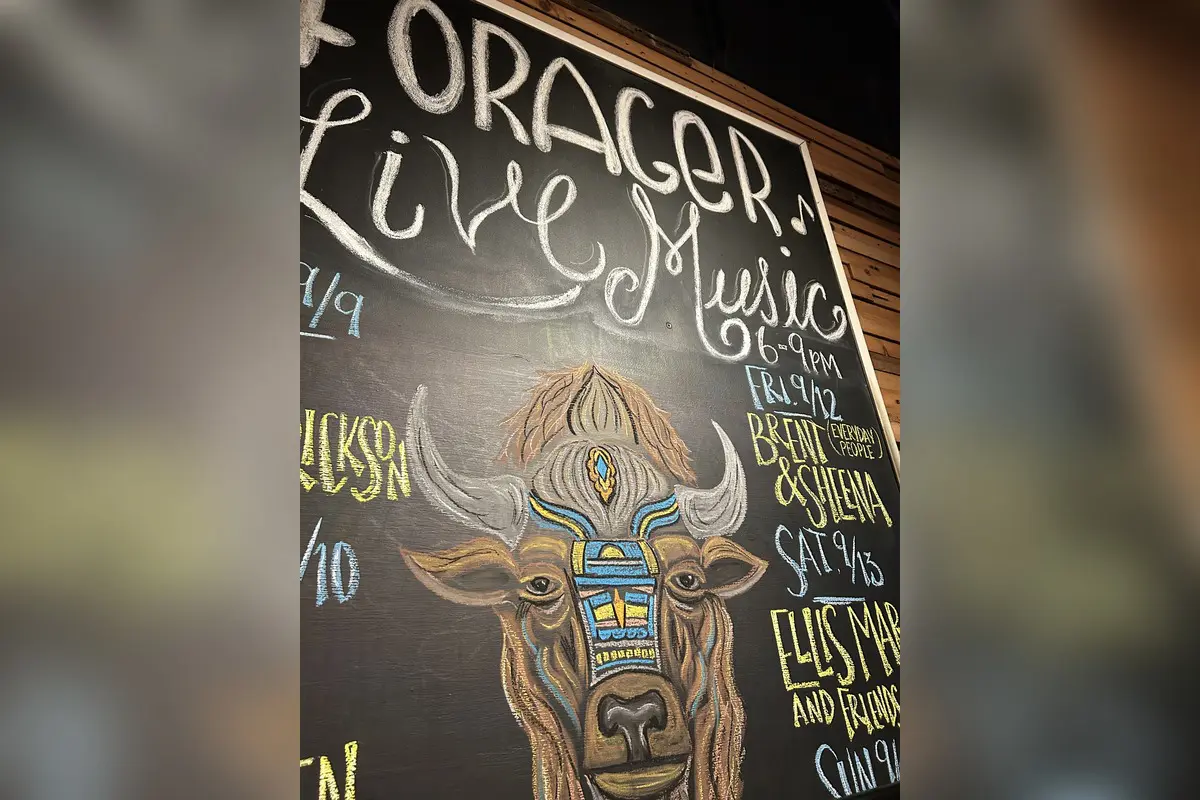 FORAGER
Live Music
6-9PM
9/9
/10
FRI. 9/12
BRENT (EVERYDAY PEOPLE)
& SHEENA
SAT. 9/13
ELLIS MAR
AND FRIENDS
SUN 9/